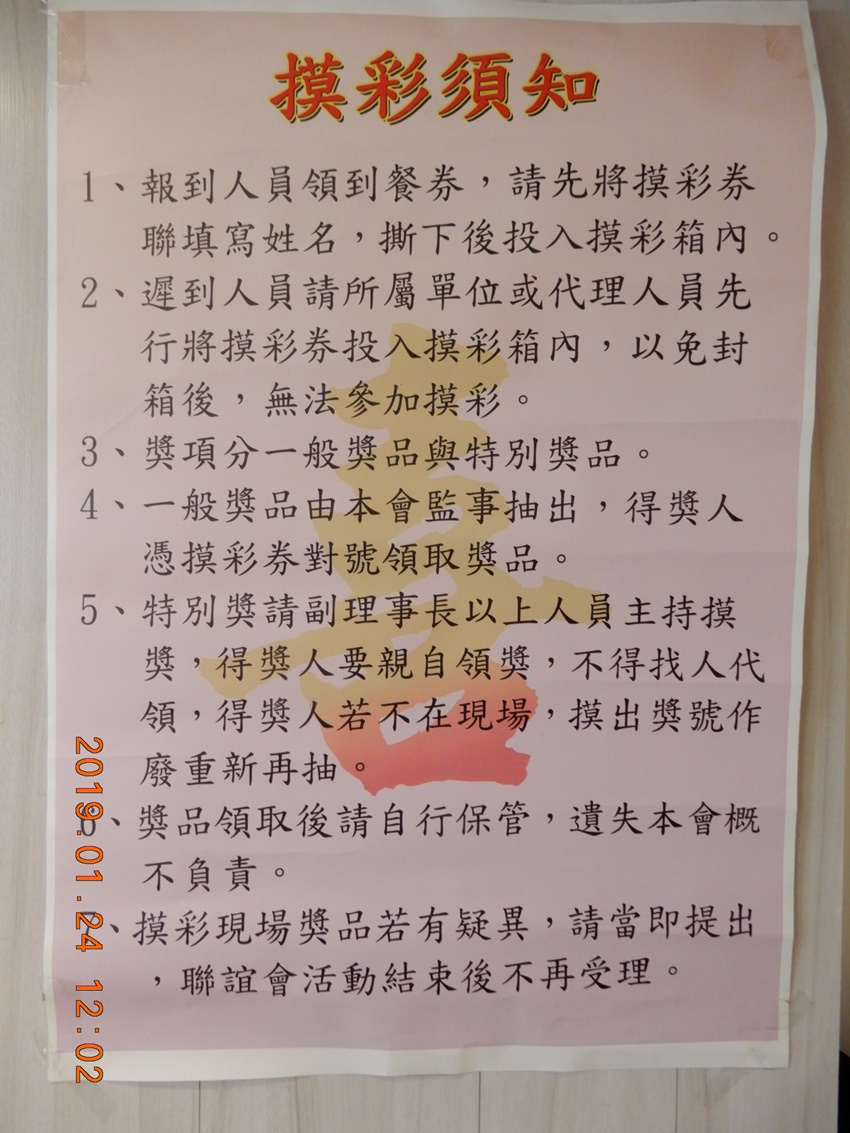 摸彩須知
1、報到人員領到餐券，請先將摸彩券
聯填寫姓名，撕下後投入摸彩箱內。
2、遲到人員請所屬單位或代理人員先
行將摸彩券投入摸彩箱內，以免封
箱後，無法參加摸彩。
3、獎項分一般獎品與特別獎品。
4、一般獎品由本會監事抽出，得獎人
憑摸彩券對號領取獎品。
5、特別獎請副理事長以上人員主持摸
獎，得獎人要親自領獎，不得找人代
領，得獎人若不在現場，摸出獎號作
廢重新再抽。
6、獎品領取後請自行保管，遺失本會概
不負責。
7、摸彩現場獎品若有疑異，請當即提出
，聯誼會活動結束後不再受理。
喜
2019.01.24 12:02